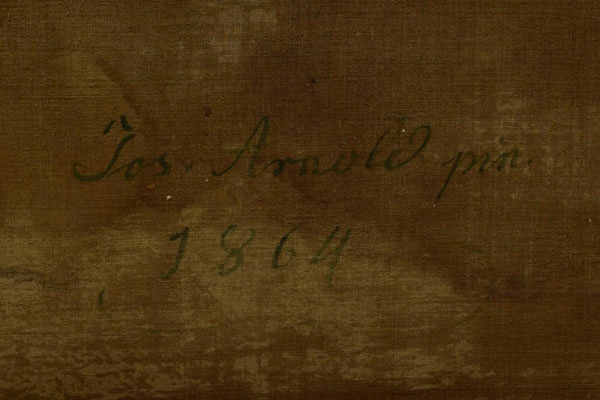 Jos. Arnold pin.
1864